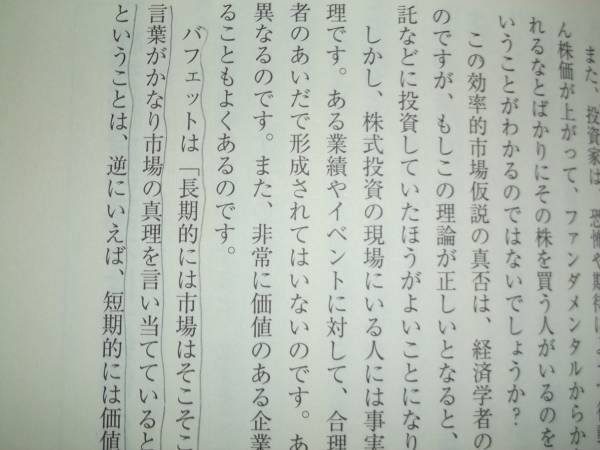 また、投資家は、恐怖や期待によって
ん株価が上がって、ファンダメンタルからか
れるなとばかりにその株を買う人がいるのを
いうことがわかるのではないでしょうか?
この効率的市場仮説の真否は、経済学者の
のですが、もしこの理論が正しいとなると、
託などに投資していたほうがよいことになり
しかし、株式投資の現場にいる人には事実
理です。ある業績やイベントに対して、合理
者のあいだで形成されてはいないのです。あ
異なるのです。また、非常に価値のある企業
ることもよくあるのです。
バフェットは「長期的には市場はそこそこ
言葉がかなり市場の真理を言い当てていると
ということは、逆にいえば、短期的には価値